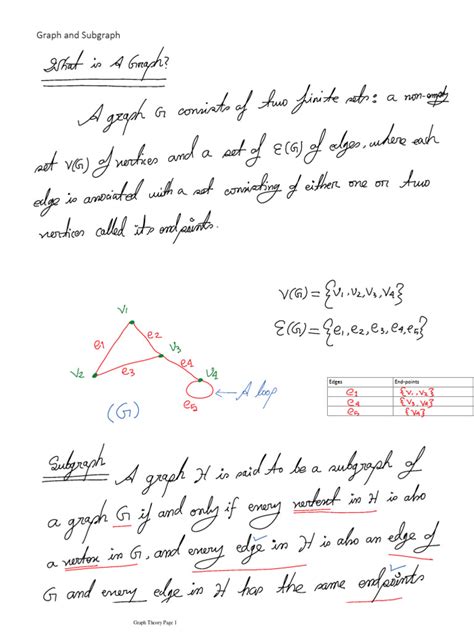 Graph and Subgraph
What is A Graph?
A graph G consists of two finite sets: a non-empty
set V(G) of vertices and a set of E(G) of edges, where each
edge is associated with a set consisting of either one or two
vertices called its endpoints.
V(G) = {V1, V2, V3, V4}
E(G) = {e1, e2, e3, e4, e5}
V1
e1
e2
V3
V2
e3
e4
V4
e5
A loop
(G)
Edges End-points
e1 {V1, V2}
e4 {V3, V4}
e5 {V4}
Subgraph
A graph H is said to be a subgraph of
a graph G if and only if every vertext in H is also
a vertex in G, and every edge in H is also an edge of
G and every edge in H has the same endpoints
Graph Theory Page 1